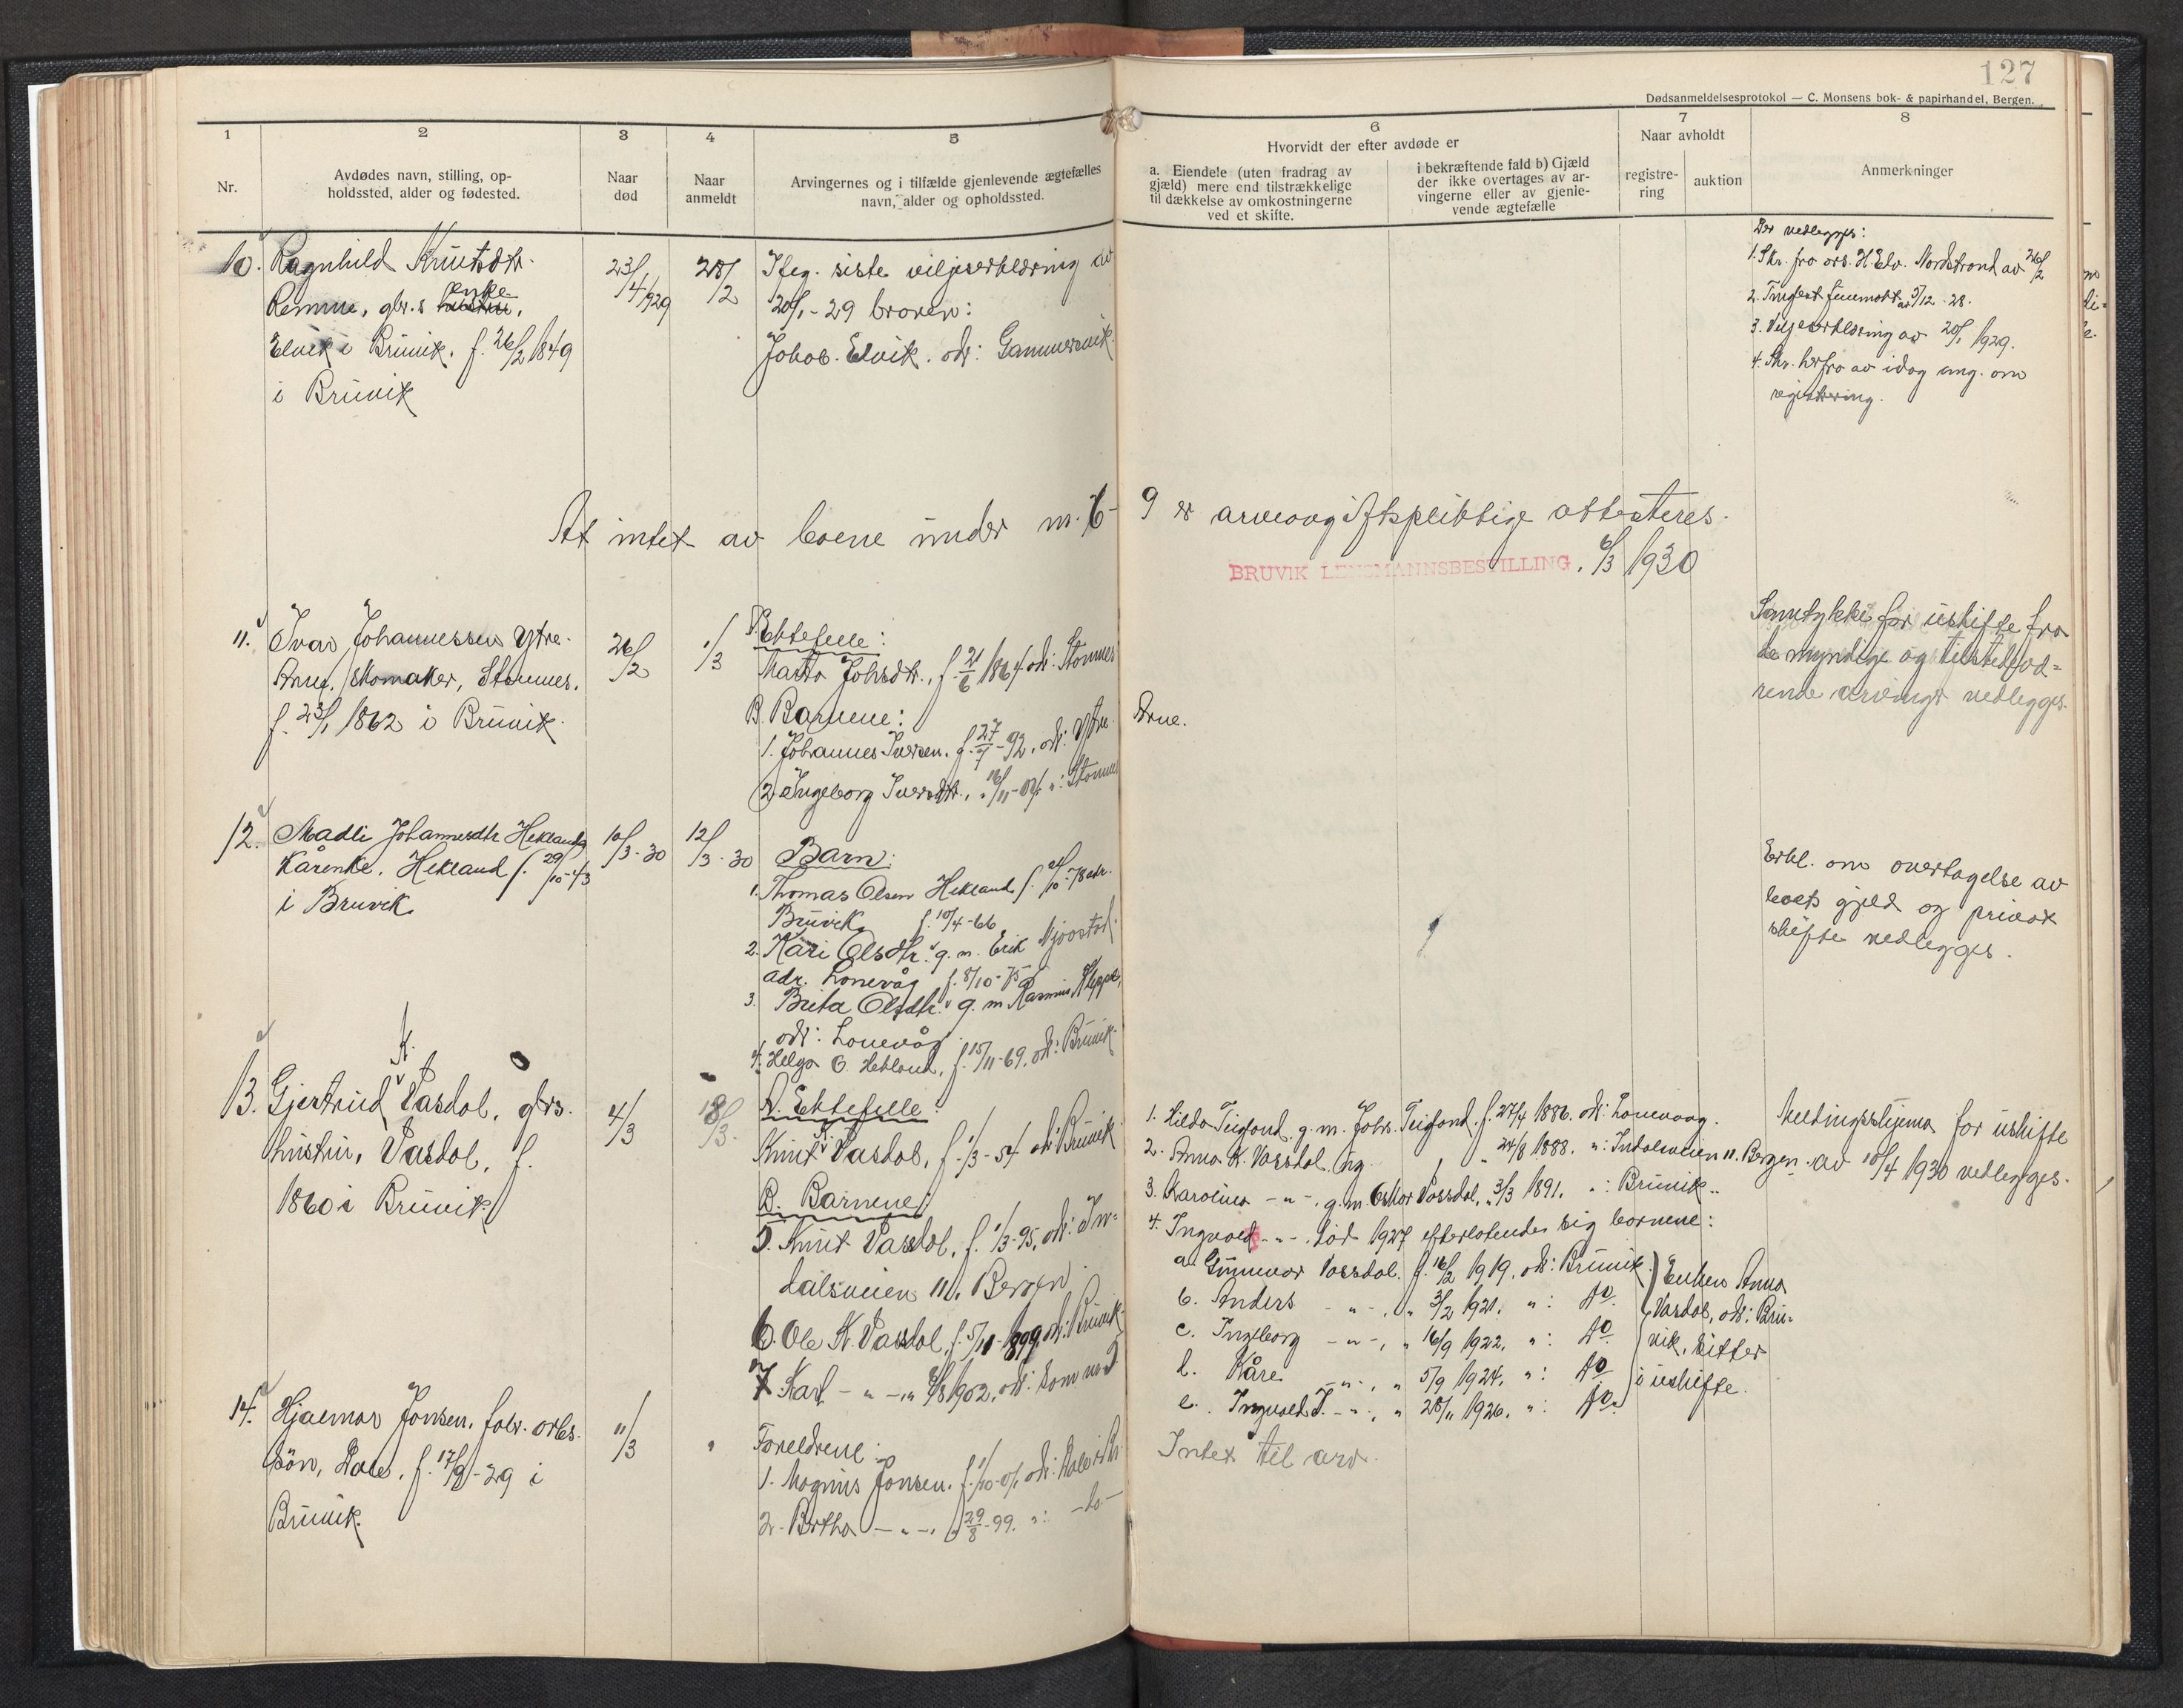 127
Dødsanmeldelsesprotokol — C. Monsens bok- & papirhandel, Bergen.
1
2
3
4
5
6
7
8
Nr.
Avdødes navn, stilling, op-
holdssted, alder og fødested.
Naar
død
Naar
anmeldt
Arvingernes og i tilfælde gjenlevende ægtefælles
navn, alder og opholdssted.
Hvorvidt der efter avdøde er
a. Eiendele (uten fradrag av
gjæld) mere end tilstrækkelige
til dækkelse av omkostningerne
ved et skifte.
i bekræftende fald b) Gjæld
der ikke overtages av ar-
vingerne eller av gjenle-
vende ægtefælle
Naar avholdt
registre-
ring
auktion
Anmerkninger
10. Ragnhild Knutsdtr.
enke
gbr.s hustru,
Elvik i Bruvik. f. 26/2 1849
i Bruvik
23/1 1929
28/2
Ifeg. siste viljeserklæring av
20/1-29 broren:
Jakob Elvik. adr: Gammersvik.
Der vedlegges:
1. Skr. fra ors. H. Edv. Nordstrand av 26/2
2. av 5/12-28.
3. Viljeserklæring av 20/1 1929.
4. Skr. herfra av idag ang. om
registrering.
At intet av boene under nr. 6-9 er arveavgiftspliktige attesteres.
BRUVIK LENSMANNSBESTILLING, 6/3 1930
11. Ivar Johannessen Ytre-
Arne, skomaker, Stomnes.
f. 23/1 1862 i Bruvik.
26/2
1/3
A. Ektefelle:
Marta Johsdtr., f. 21/6 1864 adr: Stomnes
B. Barnene:
1. Johannes Iversen. f. 27/7-92, adr: Ytre Arne.
2. Ingeborg Iversdtr., " 16/11-04 ": Stomnes
Samtykke for uskifte fra
de myndige og tilstedevæ=
rende arvinger vedlegges.
12. Madli Johannesdtr Hekland
Kårenke. Hekland f. 29/10-43
i Bruvik
10/3-30
12/3-30
Barn:
1. Thomas Olsen Hekland f. /10-78 adr.
Bruvik f. 10/4-66
2. Kari Olsdtr. g. m. Erik Mjøsstad
adr. Lonevåg f. 8/10-75
3. Brita Olsdtr. g. m. Rasmus Kleppe,
adr: Lonevåg
4. Helga O. Hekland, f. 15/11-69, adr: Bruvik
Erkl. om overtagelse av
boets gjeld og privat
skifte vedlegges.
13. Gjertrud K. Vasdal, gbrs.
hustru, Vasdal, f.
1860 i Bruvik
4/3
18/3
A. Ektefelle:
Knut K. Vasdal, f. 1/3-54 adr: Bruvik
B. Barnene:
1. Hilda Teigland, g. m. Johs. Teigland. f. 27/4 1886. adr: Lonevaag.
2. Anna K. Vassdal ug. " 24/8 1888. ": Indalsveien 11. Bergen.
3. Karoline -"-, g.m. Oskar Vassdal, " 3/3 1891. ": Bruvik.
4. Ingvald -"-, død 1927 efterlatende sig barnene:
a. Gunnvor Vassdal. f. 16/2 1919, adr: Bruvik
b. Anders -"-, " 3/2 1921. ": do
c. Ingeborg -"-, " 16/9 1922. ": do
d. Kåre -"-, " 5/9 1924. ": do
e. Ingvald J. -"-, " 28/11 1926. ": do
Enken Anna
Vasdal, adr: Bru-
vik, sitter
i uskifte.
5. Knut Vassdal, f. 1/3-95, adr: In=
dalsveien 11, Bergen
6. Ole K. Vassdal, f. 5/11-1899, adr: Bruvik
7. Karl -"-, " 8/8 1902, adr: som nr 5
Meldingsskjema for uskifte
av 10/4 1930 vedlegges.
14. Hjalmar Jonsen, fabr. arbs.
sön, Dale, f. 17/9-29 i
Bruvik.
11/3
"
Foreldrene:
1. Magnus Jonsen. f. 1/10-01, adr: Dale i Br.
2. Bertha -"-, " 29/8-99. ": -do-
Intet til arv.